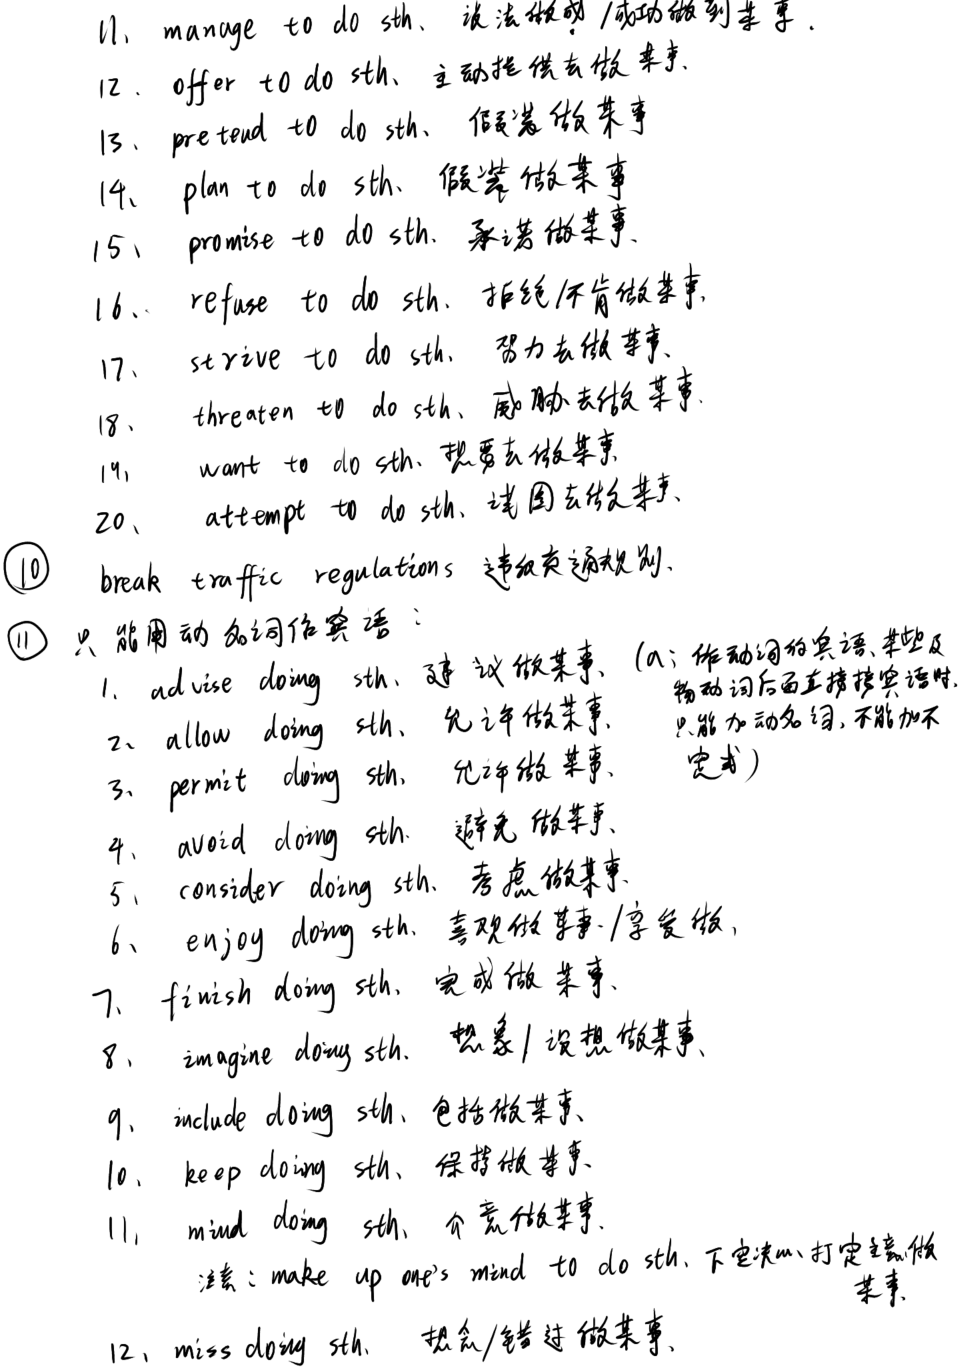 11. manage to do sth. 设法做成/成功做到某事.
12. offer to do sth、主动提供去做某事.
13、pretend to do sth、假装做某事
14、plan to do sth、假装做某事
15、promise to do sth. 承诺做某事.
16、refuse to do sth. 拒绝/不肯做某事.
17、strive to do sth. 努力去做某事、
18、threaten to do sth、威胁去做某事.
19、want to do sth、想要去做某事
20、attempt to do sth、试图去做某事、
⑩ break traffic regulations 违反交通规则.
⑪ 只能用动名词作宾语：
1. advise doing sth、建议做某事、(a; 作动词的宾语、某些及
物动词后面直接接宾语时.
2、allow doing sth、允许做某事、只能加动名词、不能加不
3、permit doing sth、允许做某事、定式)
4、avoid doing sth. 避免做某事、
5、consider doing sth. 考虑做某事、
6、enjoy doing sth. 喜欢做某事./享受做、
7、finish doing sth. 完成做某事、
8、imagine doing sth. 想象/设想做某事、
9、include doing sth、包括做某事、
10、keep doing sth、保持做某事、
11、mind doing sth、介意做某事.
注意：make up one's mind to do sth、下定决心、打定主意做
某事.
12、miss doing sth. 想念/错过做某事、